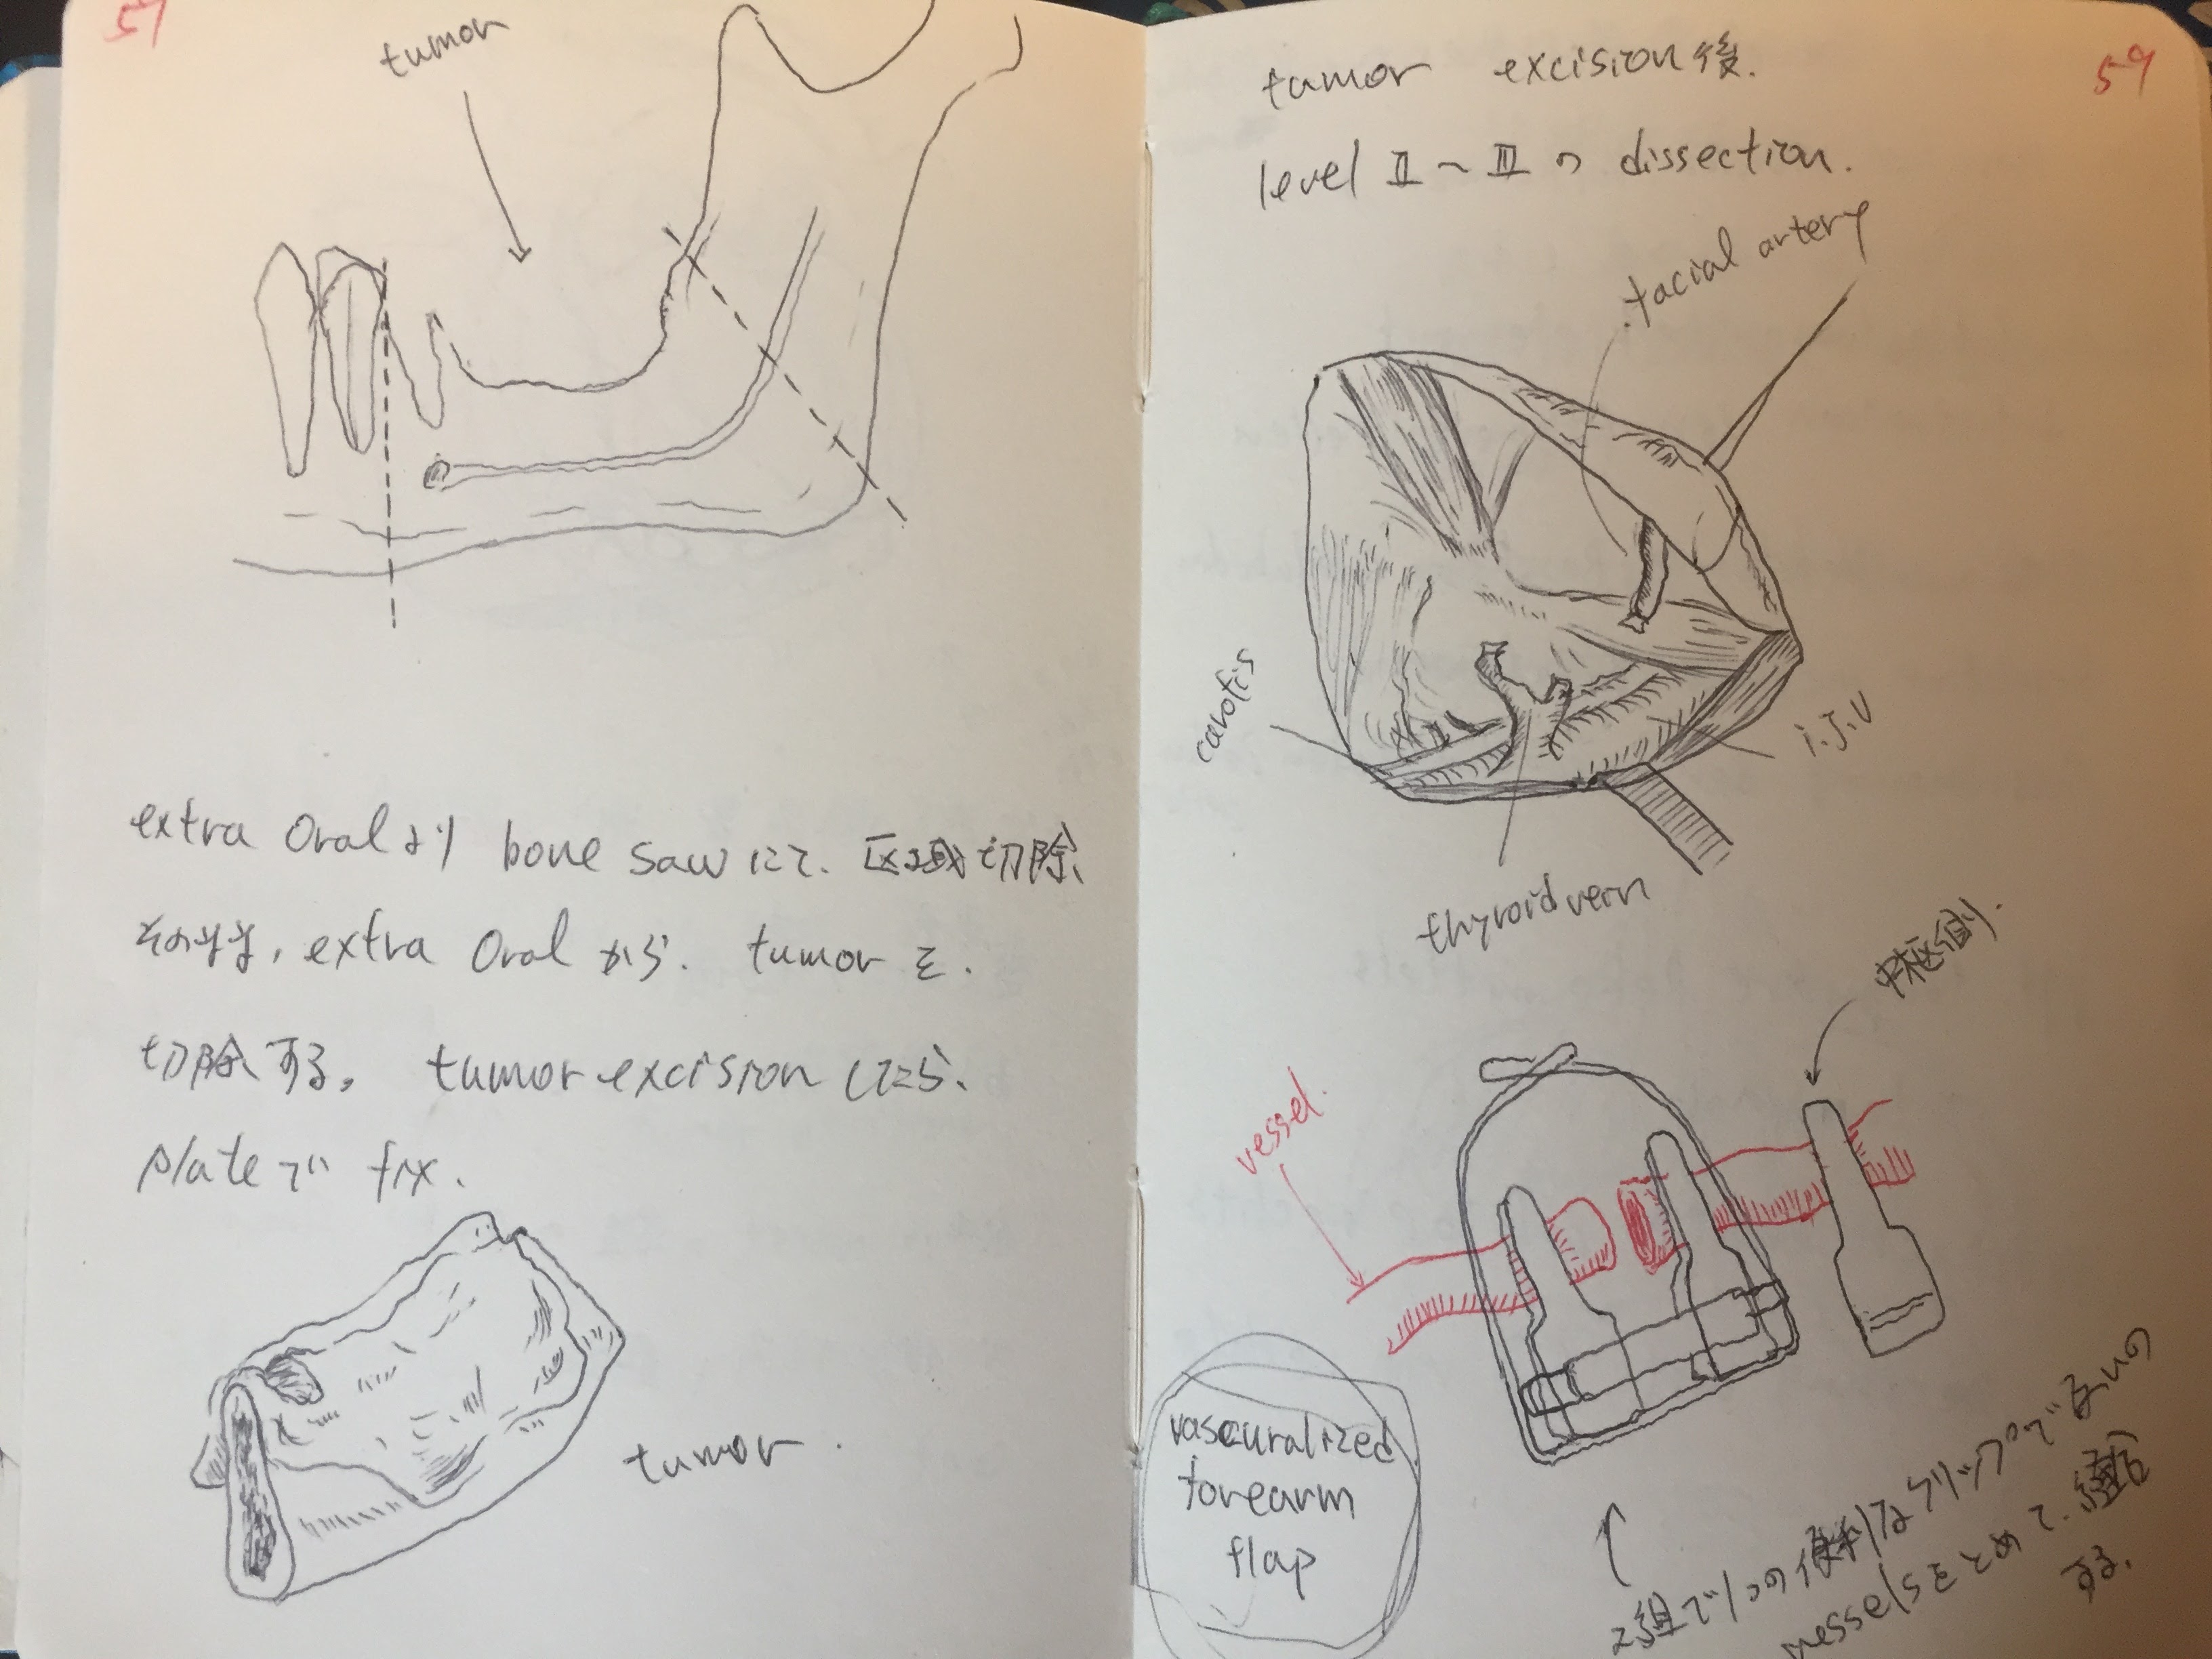 57
tumor
extra oralより bone sawにて. 区域切除、
その
extra oral から. tumor を.
切除する。 tumor excision したら、
plateで fix.
tumor.
59
tumor excision後.
level Ⅱ~Ⅲの dissection.
facial artery
carotis
i.J.V
thyroid vein
中枢側.
vessel.
vascuralized
forearm
flap
2組で1つの便利なクリップで互いの
vesselsをとめて、縫合
する.